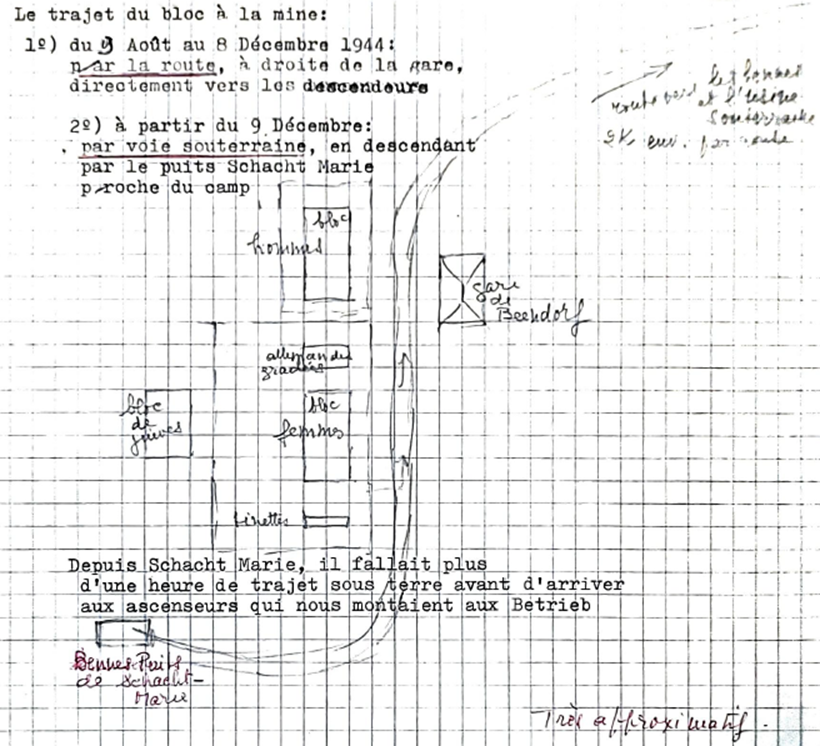 Le trajet du bloc à la mine:
1º) du 9 Août au 8 Décembre 1944:
par la route, à droite de la gare,
directement vers les descendeurs
2º) à partir du 9 Décembre:
par voie souterraine, en descendant
par le puits Schacht Marie
proche du camp
route vers les bennes
et l'usine
souterraine
2K env. par route
bloc
hommes
gare
de
Beendorf
allemandes
gradées
bloc
de
juives
bloc
femmes
tinettes
Depuis Schacht Marie, il fallait plus
d'une heure de trajet sous terre avant d'arriver
aux ascenseurs qui nous montaient aux Betrieb
Bennes-Puits
de Schacht-
Marie
Très approximatif.